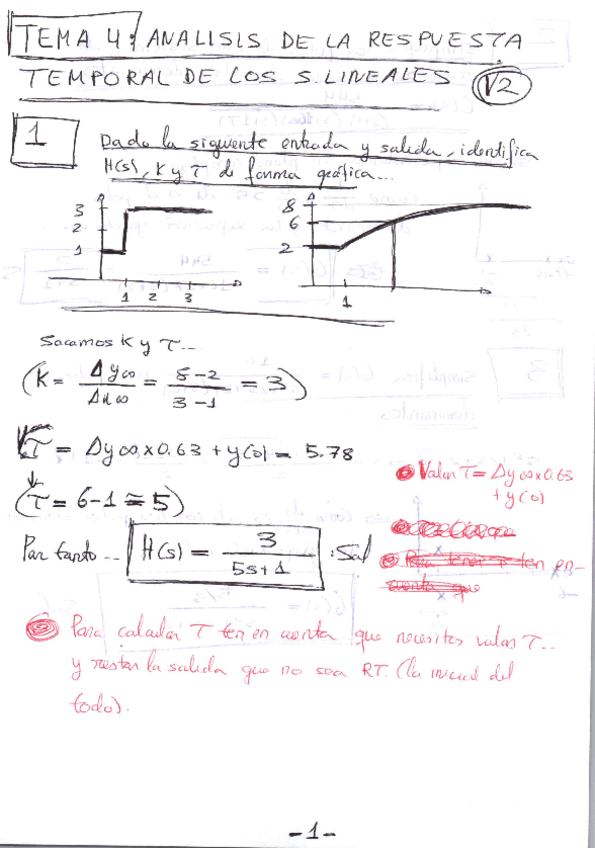 TEMA 4: ANALISIS DE LA RESPUESTA
TEMPORAL DE LOS S. LINEALES V2
1 Dada la siguiente entrada y salida, identifica
H(s), K y τ de forma gráfica...
3
2
1
1 2 3
8
6
2
1
Sacamos K y τ...
(K = Δy∞ / Δu∞ = 8-2 / 3-1 = 3)
Vτ = Δy∞ x 0.63 + y(0) = 5.78
(τ = 6-1 ≅ 5)
Valor τ = Δy∞ x 0.63
+ y(0)
Por tanto... H(s) = 3 / 5s+1 : Sol
Para calcular τ ten en cuenta que necesitas valor τ...
y restar la salida que no sea RT. (la inicial del
todo).
-1-